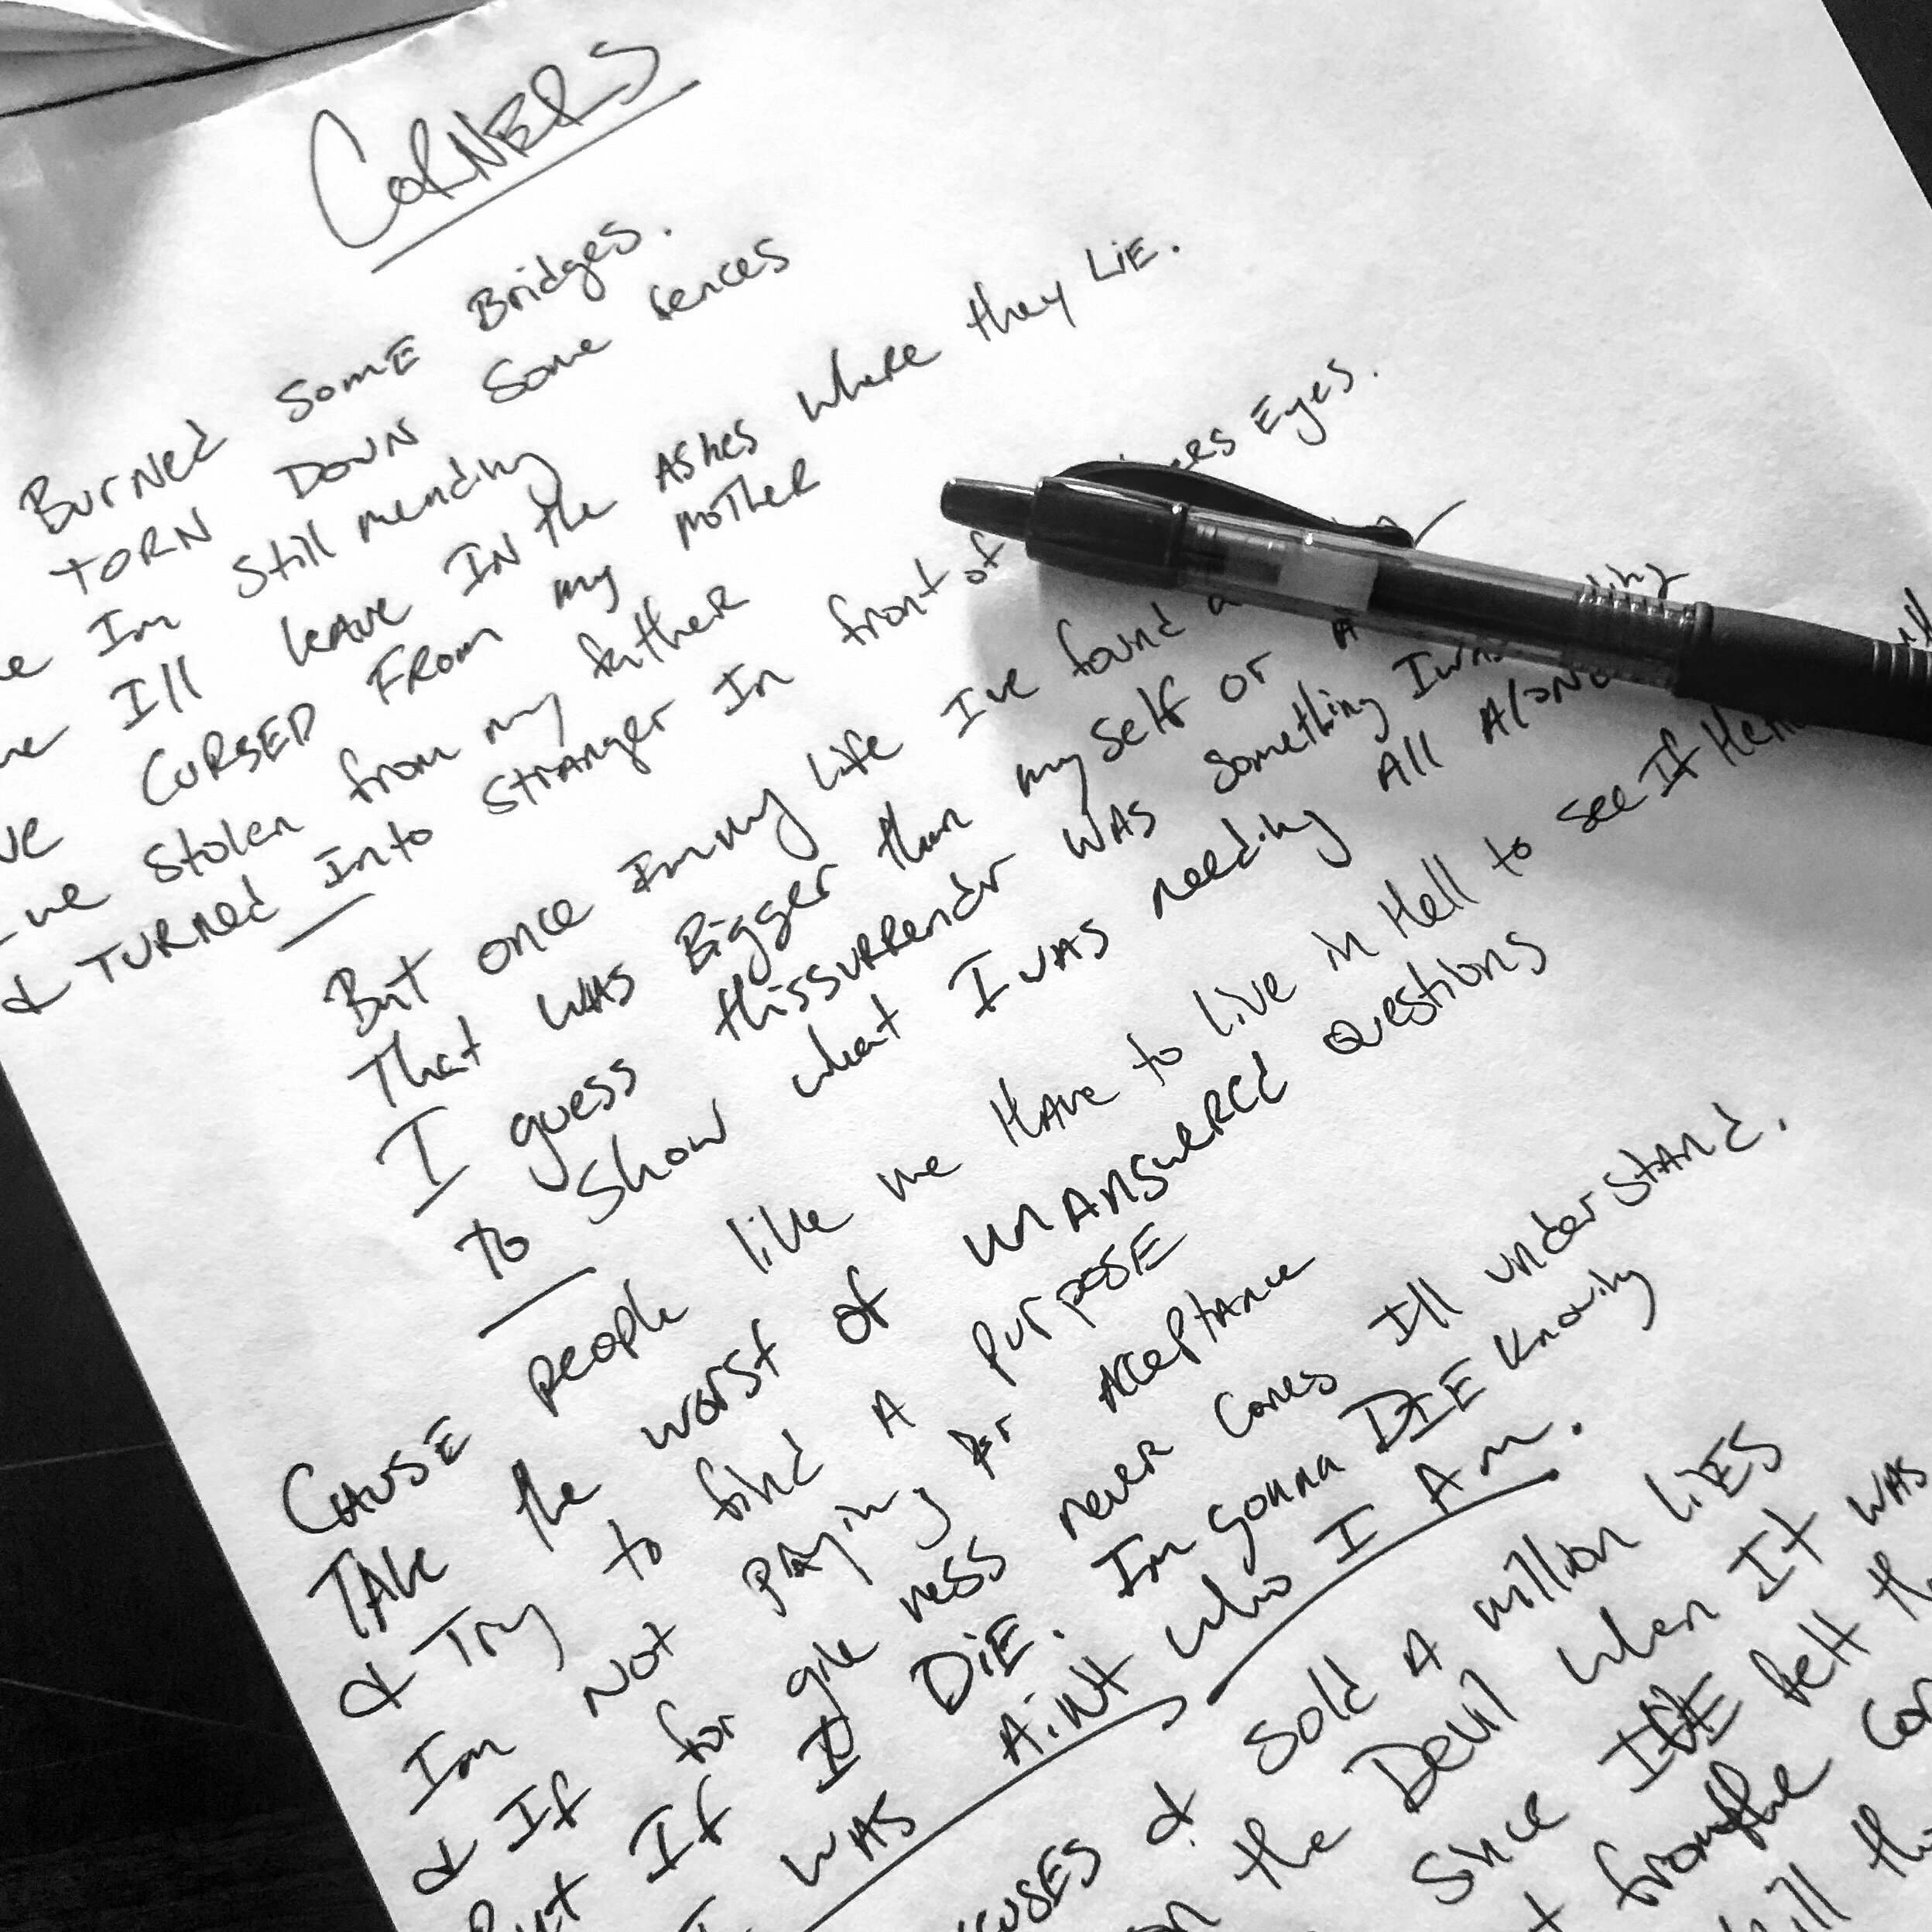 CORNERS
Burned some Bridges.
TORN DOWN some fences
Im still mending
Ill leave IN the Ashes where they LIE.
CURSED FROM my mother
stolen from my father
& TURNED Into stranger In front of Eyes.
But once In my life I've found
That was Bigger than myself or
I guess this surrender was something I was
to show what I was needing All Alone
CAUSE people like me HAve to live in Hell to see If
TAke the worst of unanswered questions
& Try to find A purpose
Im Not paying for Acceptance
& If forgiveness never comes Ill understand.
But If I DiE. Im gonna DIE knowing
I WAS Aint who I Am.
& sold A million liES
the Devil when It was
Since I'VE felt
from the